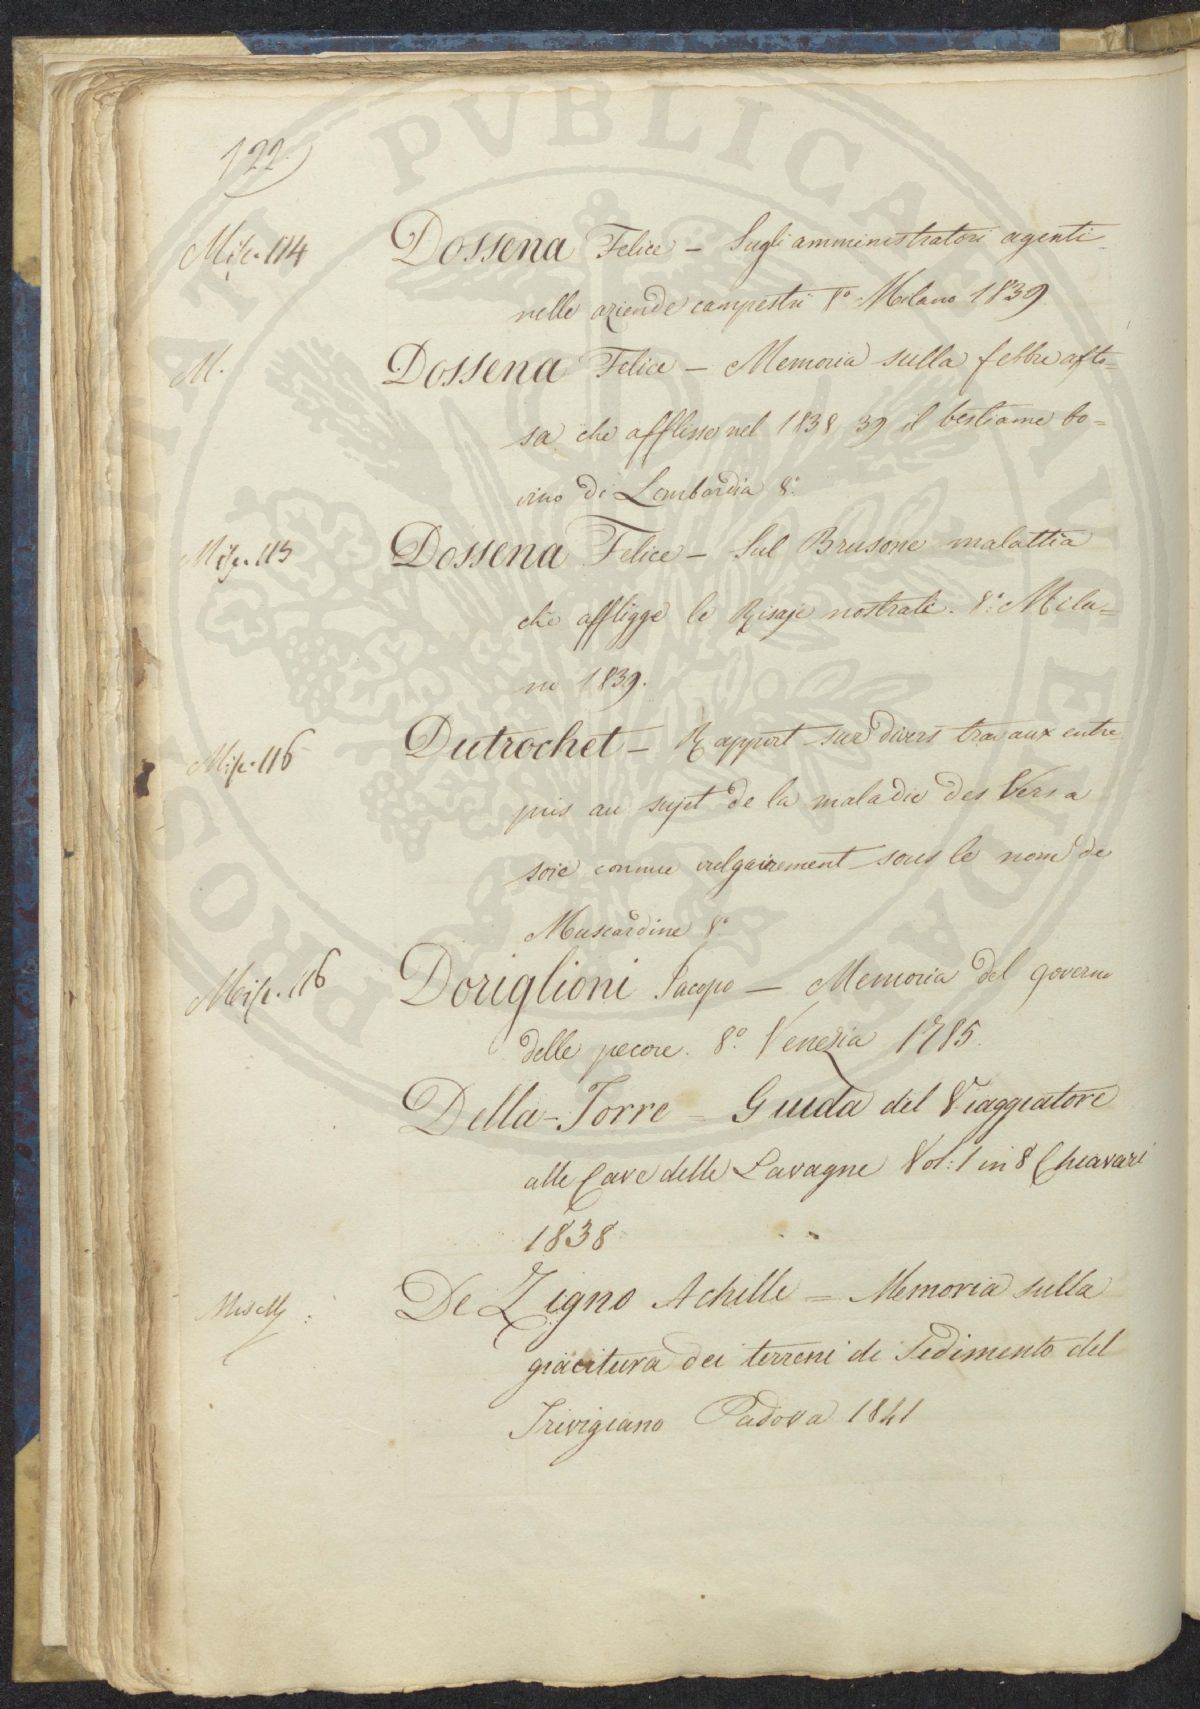 122
Misc. 114 Dossena Felice – Sugli amministratori agenti
nelle aziende campestri 8º Milano 1839
M. Dossena Felice – Memoria sulla febbre afto=
sa che afflisse nel 1838 39 il bestiame bo=
vino di Lombardia 8º
Misc. 115 Dossena Felice – Sul Brusone malattia
che affligge le Risaje nostrali. 8º Mila=
no 1839.
Misc. 116 Dutrochet – Rapport sur divers travaux entre
pris au sujet de la maladie des Vers a
soie connue vulgairement sous le nom de
Muscardine 8º
Misc. 116 Doriglioni Jacopo – Memoria del governo
delle pecore. 8º Venezia 1785.
Della-Torre = Guida del Viaggiatore
alle Cave delle Lavagne Vol: 1 in 8 Chiavari
1838
De Zigno Achille = Memoria sulla
giacitura dei terreni di Sedimento del
Trivigiano Padova 1841
PROSPERITATI PUBLICAE AUGENDAE